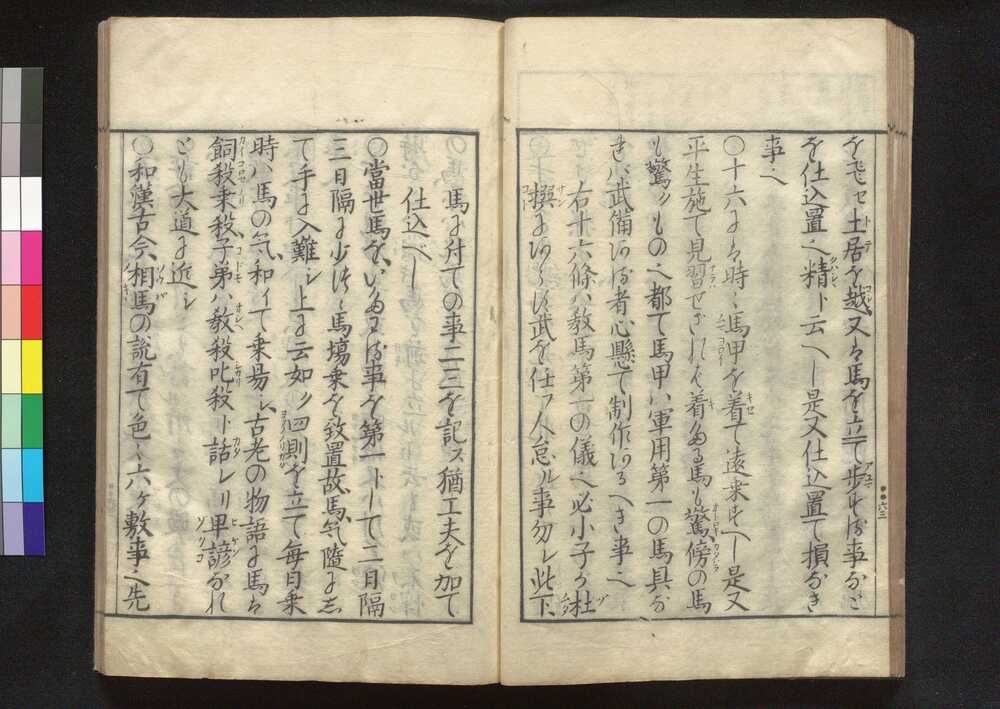 をモセ土居を越又は馬を立て歩する事など
を仕込置へ精ト云へし是又仕込置て損なき
事也
○十六には時々馬甲を着て遠乗すへし是又
平生施て見習せざれば着たる馬も驚傍の馬
も驚くもの也都て馬甲は軍用第一の馬具な
れば武備ある者心懸て制作あるべき事也
右十六條は教馬第一の儀也必小子が杜
撰にあらず武を任ずる人怠ル事勿レ此下
馬に付ての事二三を記ス猶工夫を加て
仕込べし
○當世馬をいためざる事を第一トして二日隔
三日隔に少しづゝ馬場乗を致置故馬気隨にし
て手に入難し上に云如く四則を立て毎日乗
時は馬の気和イて乗易し古老の物語に馬は
飼殺乗殺子弟は教殺叱殺ト話レリ卑諺なれ
ども大道に近シ
○和漢古今相馬の説有て色々六ヶ敷事也先